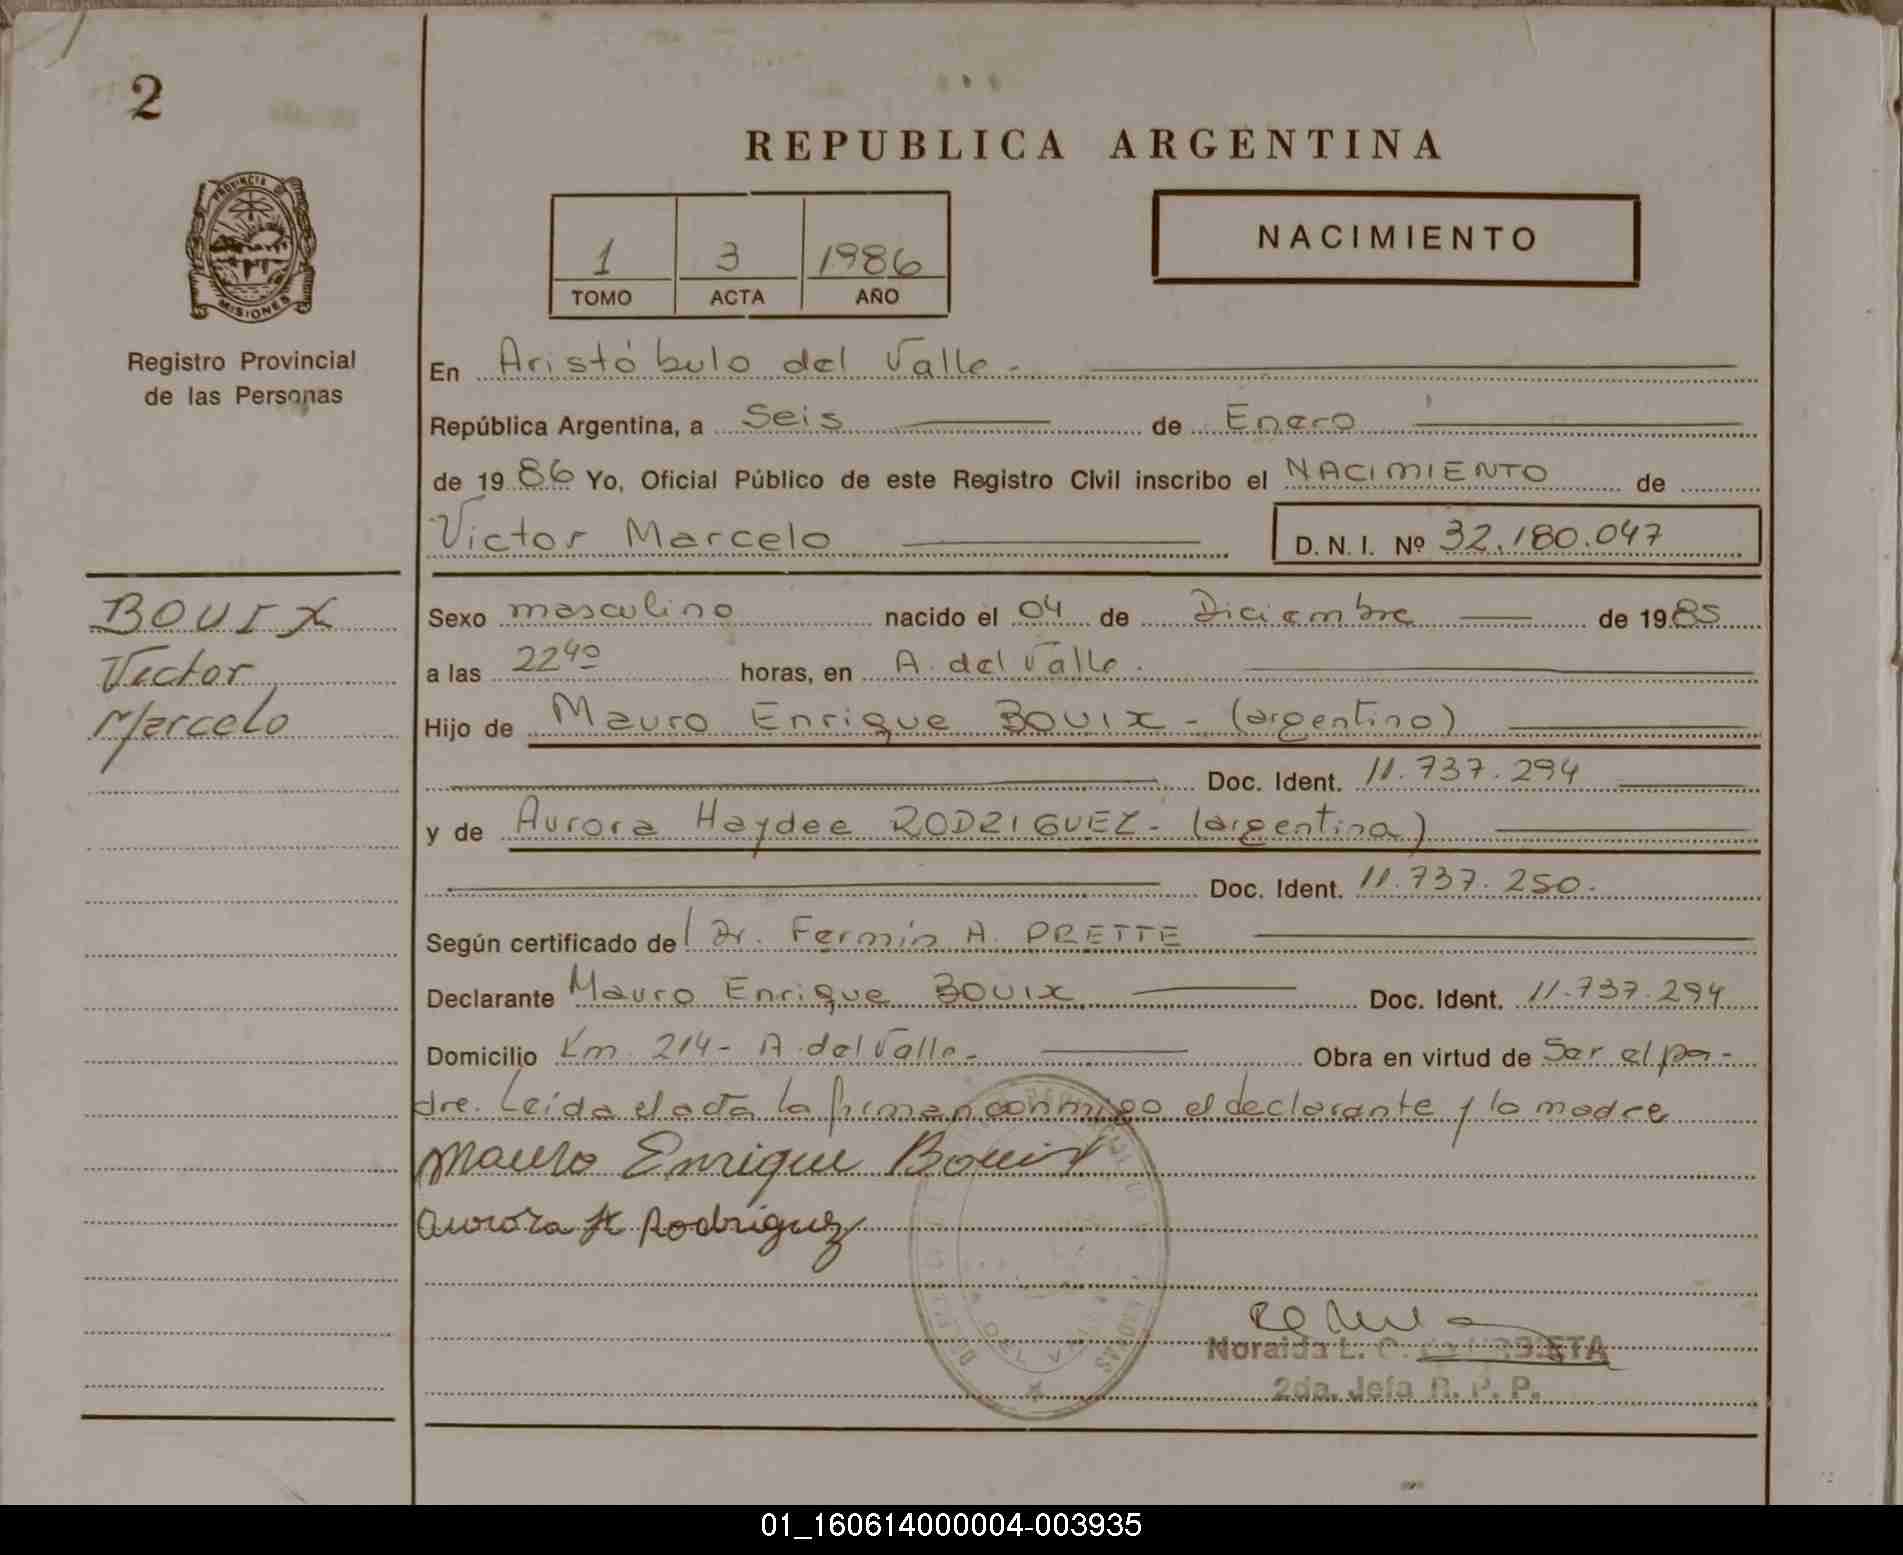 2
PROVINCIA DE
MISIONES
Registro Provincial
de las Personas
BOUIX
Victor
Marcelo
REPUBLICA ARGENTINA
1 3 1986
TOMO ACTA AÑO
NACIMIENTO
En Aristóbulo del Valle -
República Argentina, a Seis de Enero
de 1986 Yo, Oficial Público de este Registro Civil inscribo el NACIMIENTO de
Victor Marcelo D. N. I. Nº 32.180.047
Sexo masculino nacido el 04 de Diciembre de 1985
a las 22⁴⁰ horas, en A. del Valle.
Hijo de Mauro Enrique BOUIX - (argentino)
Doc. Ident. 11.737.294
y de Aurora Haydee RODRIGUEZ - (argentina)
Doc. Ident. 11.737.250.
Según certificado del Dr. Fermín A. PRETTE
Declarante Mauro Enrique BOUIX Doc. Ident. 11.737.294
Domicilio Km. 214 - A. del Valle - Obra en virtud de Ser el pa-
dre. Leída el acta la firman conmigo el declarante y la madre
Mauro Enrique Bouix
Aurora H Rodriguez
Noraida L.
2da. Jefa R. P. P.
01_160614000004-003935